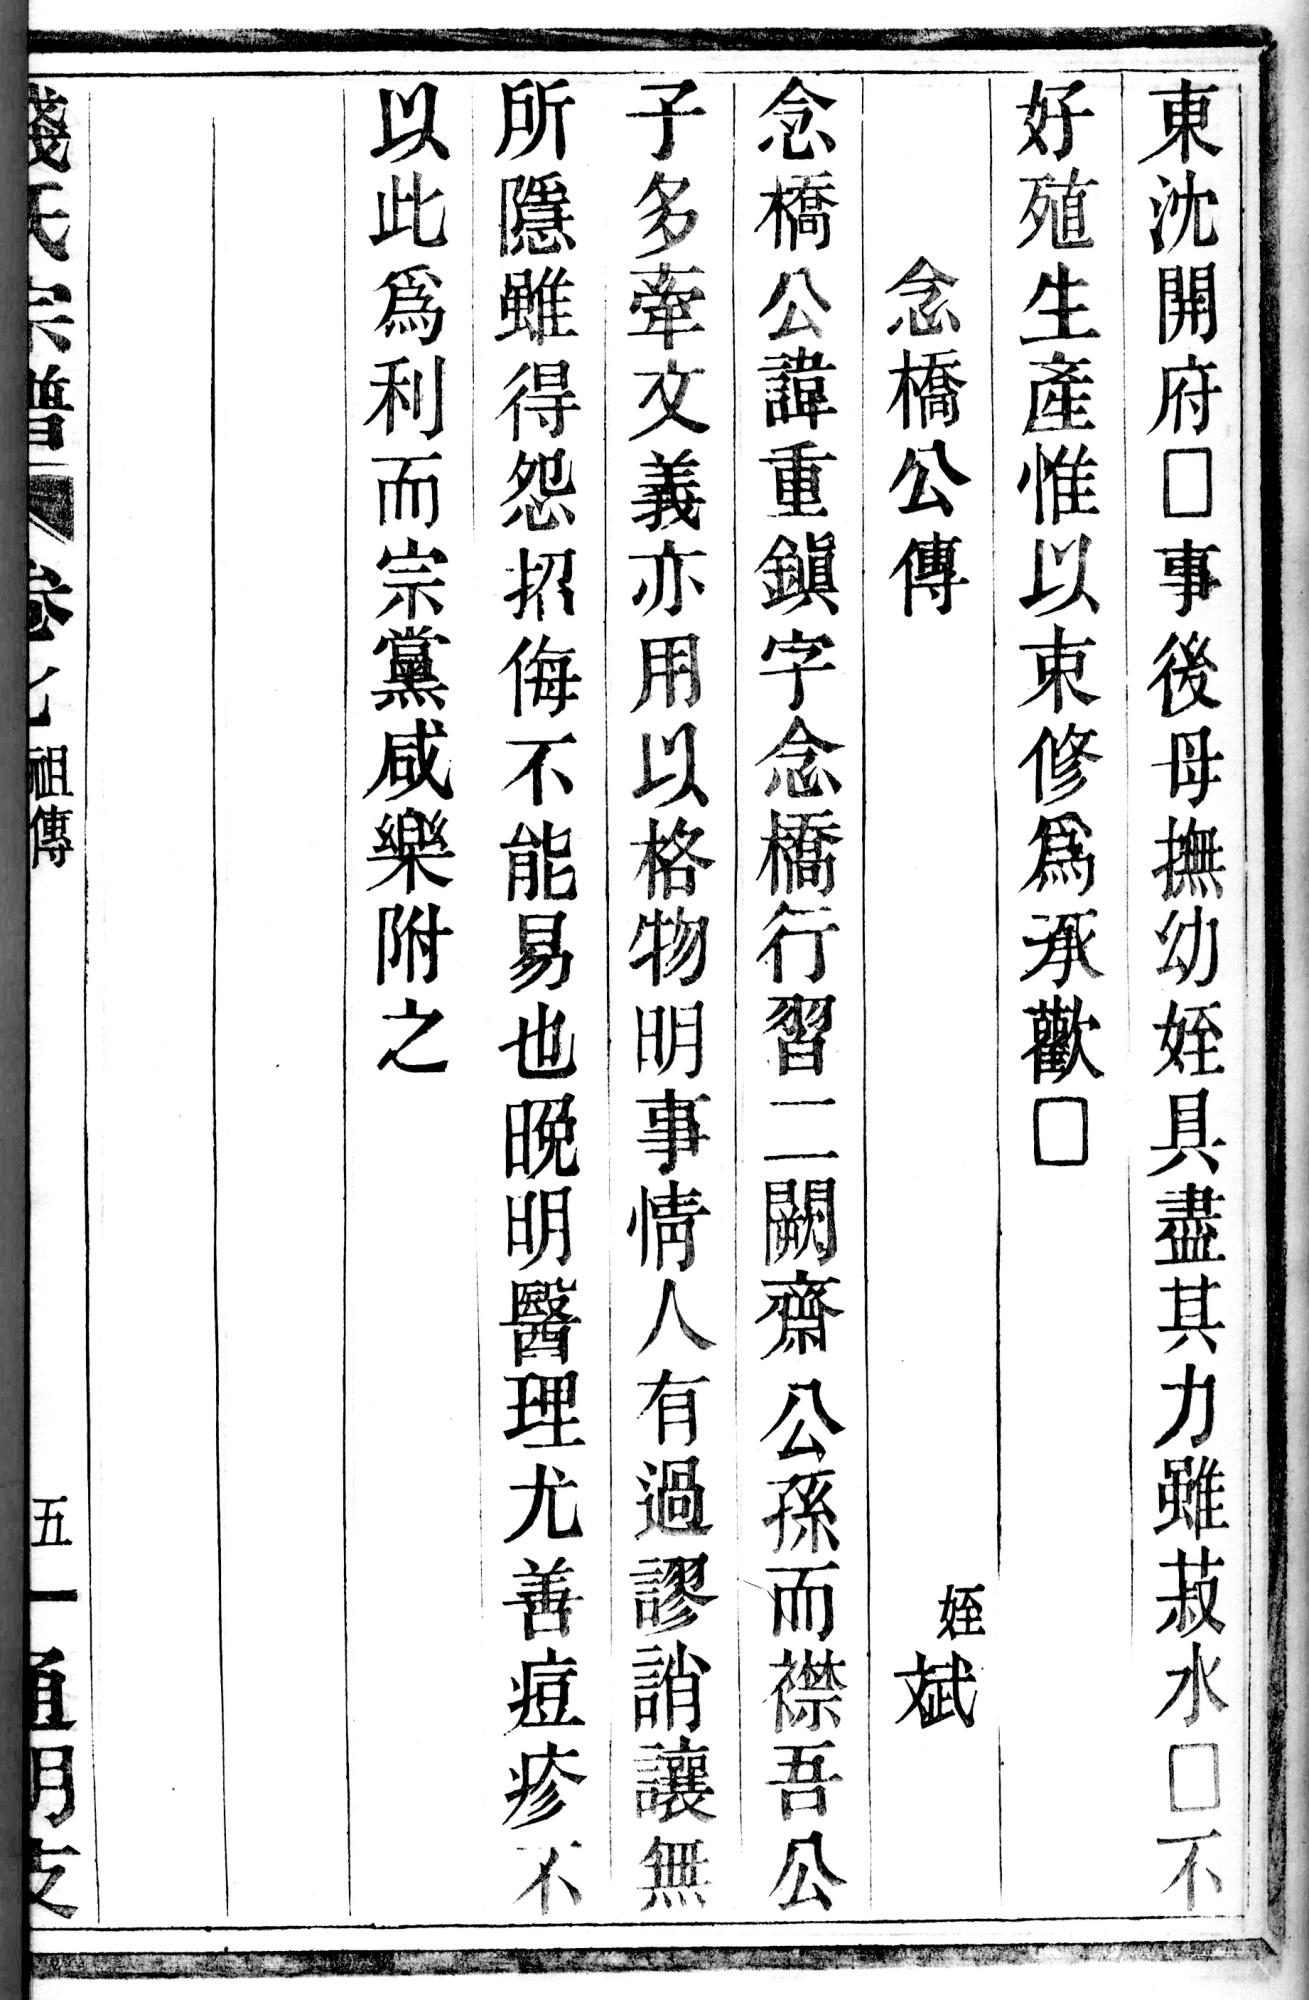 東沈開府□事後母撫幼姪具盡其力雖菽水□不
好殖生產惟以束修爲承歡□
念橋公傳
姪斌
念橋公諱重鎭字念橋行習二闕齋公孫而襟吾公
子多牽文義亦用以格物明事情人有過謬誚讓無
所隱雖得怨招侮不能易也晚明醫理尤善痘疹不
以此爲利而宗黨咸樂附之
錢氏宗譜
卷七
祖傳
五一
通明支